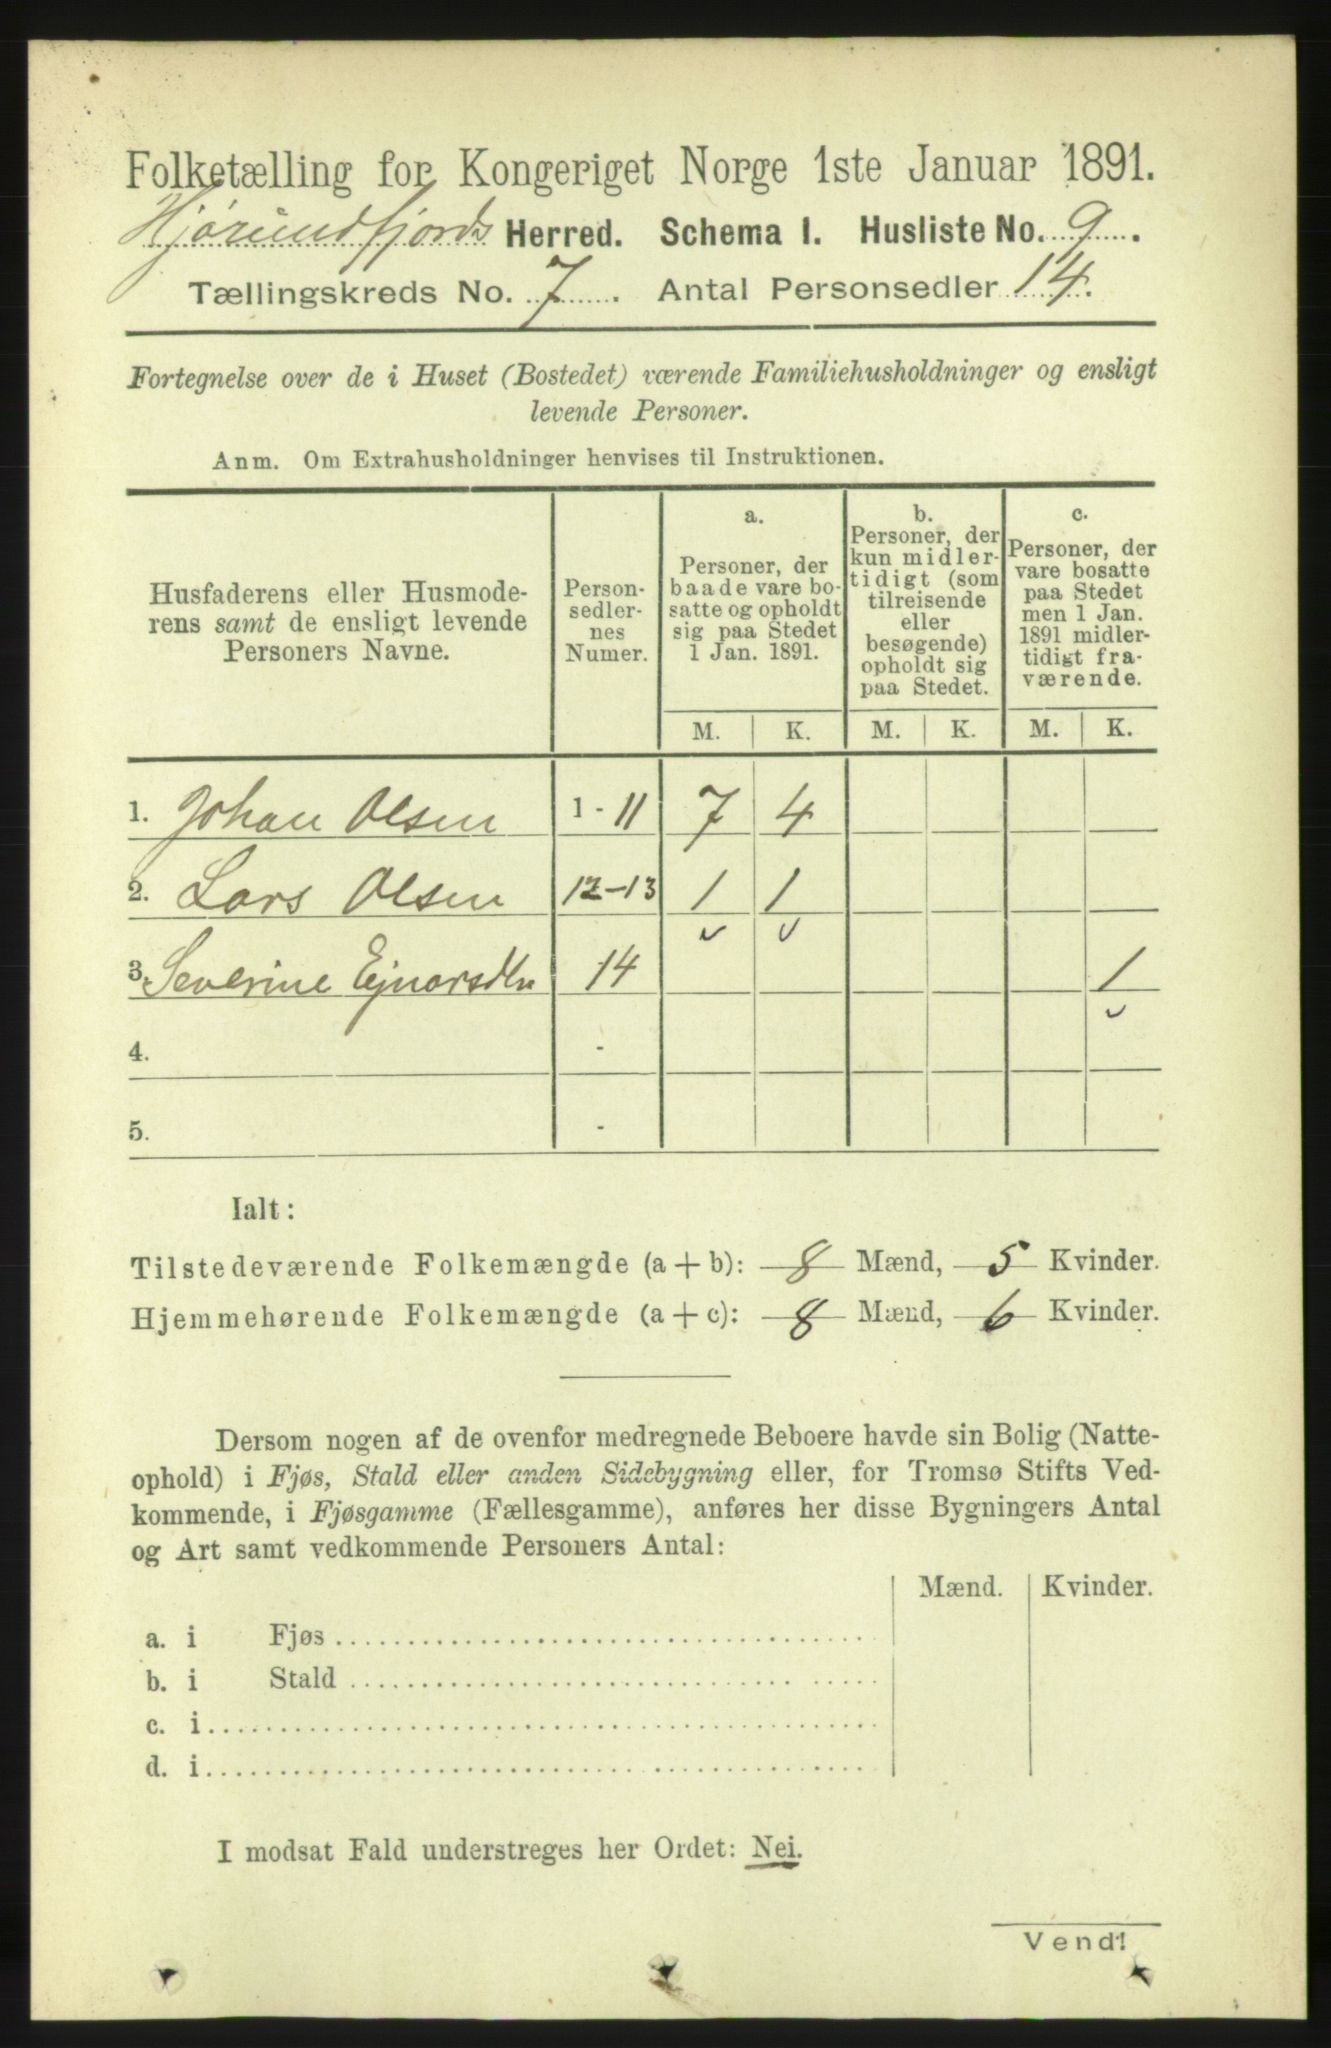 Folketælling for Kongeriget Norge 1ste Januar 1891.
Hjørundfjords Herred. Schema I. Husliste No. 9.
Tællingskreds No. 7. Antal Personsedler 14.
Fortegnelse over de i Huset (Bostedet) værende Familiehusholdninger og ensligt
levende Personer.
Anm. Om Extrahusholdninger henvises til Instruktionen.
Husfaderens eller Husmode-
rens samt de ensligt levende
Personers Navne.
Person-
sedler-
nes
Numer.
a.
Personer, der
baade vare bo-
satte og opholdt
sig paa Stedet
1 Jan. 1891.
b.
Personer, der
kun midler-
tidigt (som
tilreisende
eller
besøgende)
opholdt sig
paa Stedet.
c.
Personer, der
vare bosatte
paa Stedet
men 1 Jan.
1891 midler-
tidigt fra-
værende.
M. K. M. K. M. K.
1. Johan Olsen 1 - 11 7 4
2. Lars Olsen 12-13 1 1
3. Severine Ejnarsdtr 14 1
4. -
5. -
Ialt:
Tilstedeværende Folkemængde (a + b): 8 Mænd, 5 Kvinder.
Hjemmehørende Folkemængde (a + c): 8 Mænd, 6 Kvinder.
Dersom nogen af de ovenfor medregnede Beboere havde sin Bolig (Natte-
ophold) i Fjøs, Stald eller anden Sidebygning eller, for Tromsø Stifts Ved-
kommende, i Fjøsgamme (Fællesgamme), anføres her disse Bygningers Antal
og Art samt vedkommende Personers Antal:
Mænd. Kvinder.
a. i Fjøs
b. i Stald
c. i
d. i
I modsat Fald understreges her Ordet: Nei.
Vend!